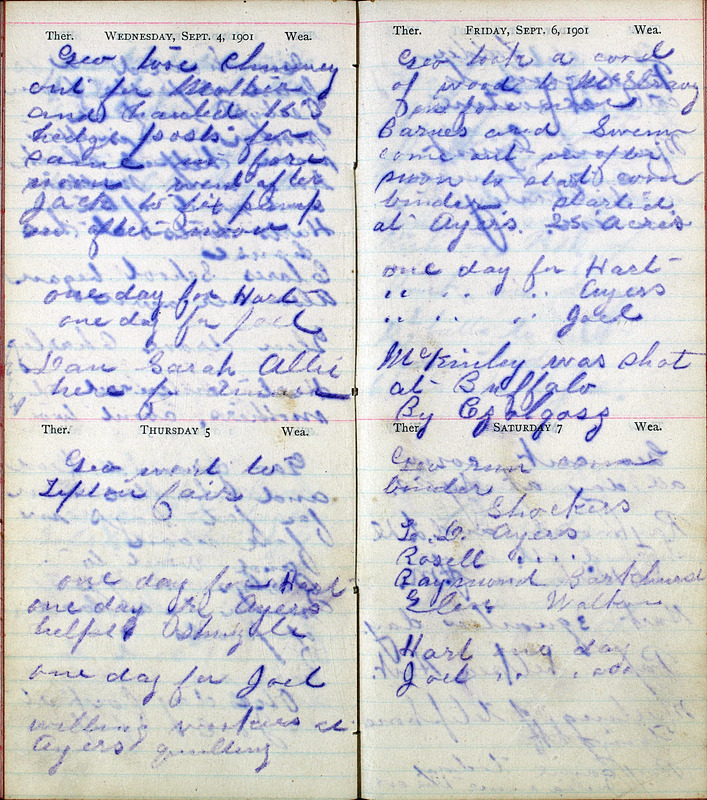 Ther. WEDNESDAY, SEPT. 4, 1901 Wea.
Geo tore chimney
out for Mother
and hauled
hedge posts for
same in fore
noon went after
Jack to fix pump
in afternoon
one day for Hart
one day for Joel
Dan Sarah Allie
here for dinner
Ther. THURSDAY 5 Wea.
Geo went to
Tipton fair
one day for Hart
one day Ayers
helped
one day for Joel
willing workers at
Ayers quilting
Ther. FRIDAY, SEPT. 6, 1901 Wea.
Geo took a cord
of wood to McElravy
in forenoon
Barnes and Swem
come out in after
noon to start corn
binder started
at Ayers. 25 Acres
one day for Hart
" " " Ayers
" " " Joel
McKinley was shot
at Buffalo
By Czalgosz
Ther. SATURDAY 7 Wea.
Geo run corn
binder
Shockers
L. D. Ayers
Rosell " "
Raymond Barkhurst
Eler Walker
Hart day
Joel " "